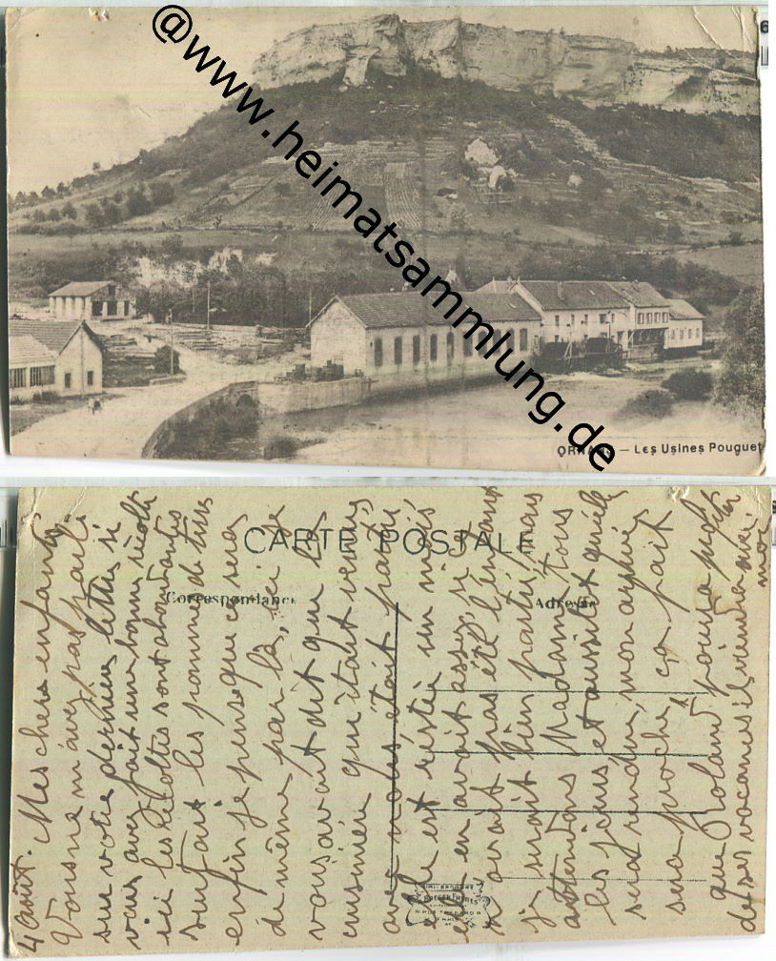 @www.heimatsammlung.de
— Les Usines Pouguet
CARTE POSTALE
Correspondance
Adresse
4 août. Mes chers enfants,
Vous ne m'avez pas parlé
sur votre dernière lettre si
vous avez fait une bonne récolte
ici les récoltes sont abondantes
surtout les pommes de terre
enfin je pense que ce sera
de même par là, ici je
vous avait dit que la
cuisinière qui était venue
avec nous était partie
elle est restée un mois
en avait assez, si
n'avait pas été l'enfant
je serait bien partie, nous
attendons Madame tous
les jours et aussitôt qu'elle
sera rendu, mon arrivée
sera proche, ça fait
que Roland pourra profiter
de ses vacances il viendra avec
moi.